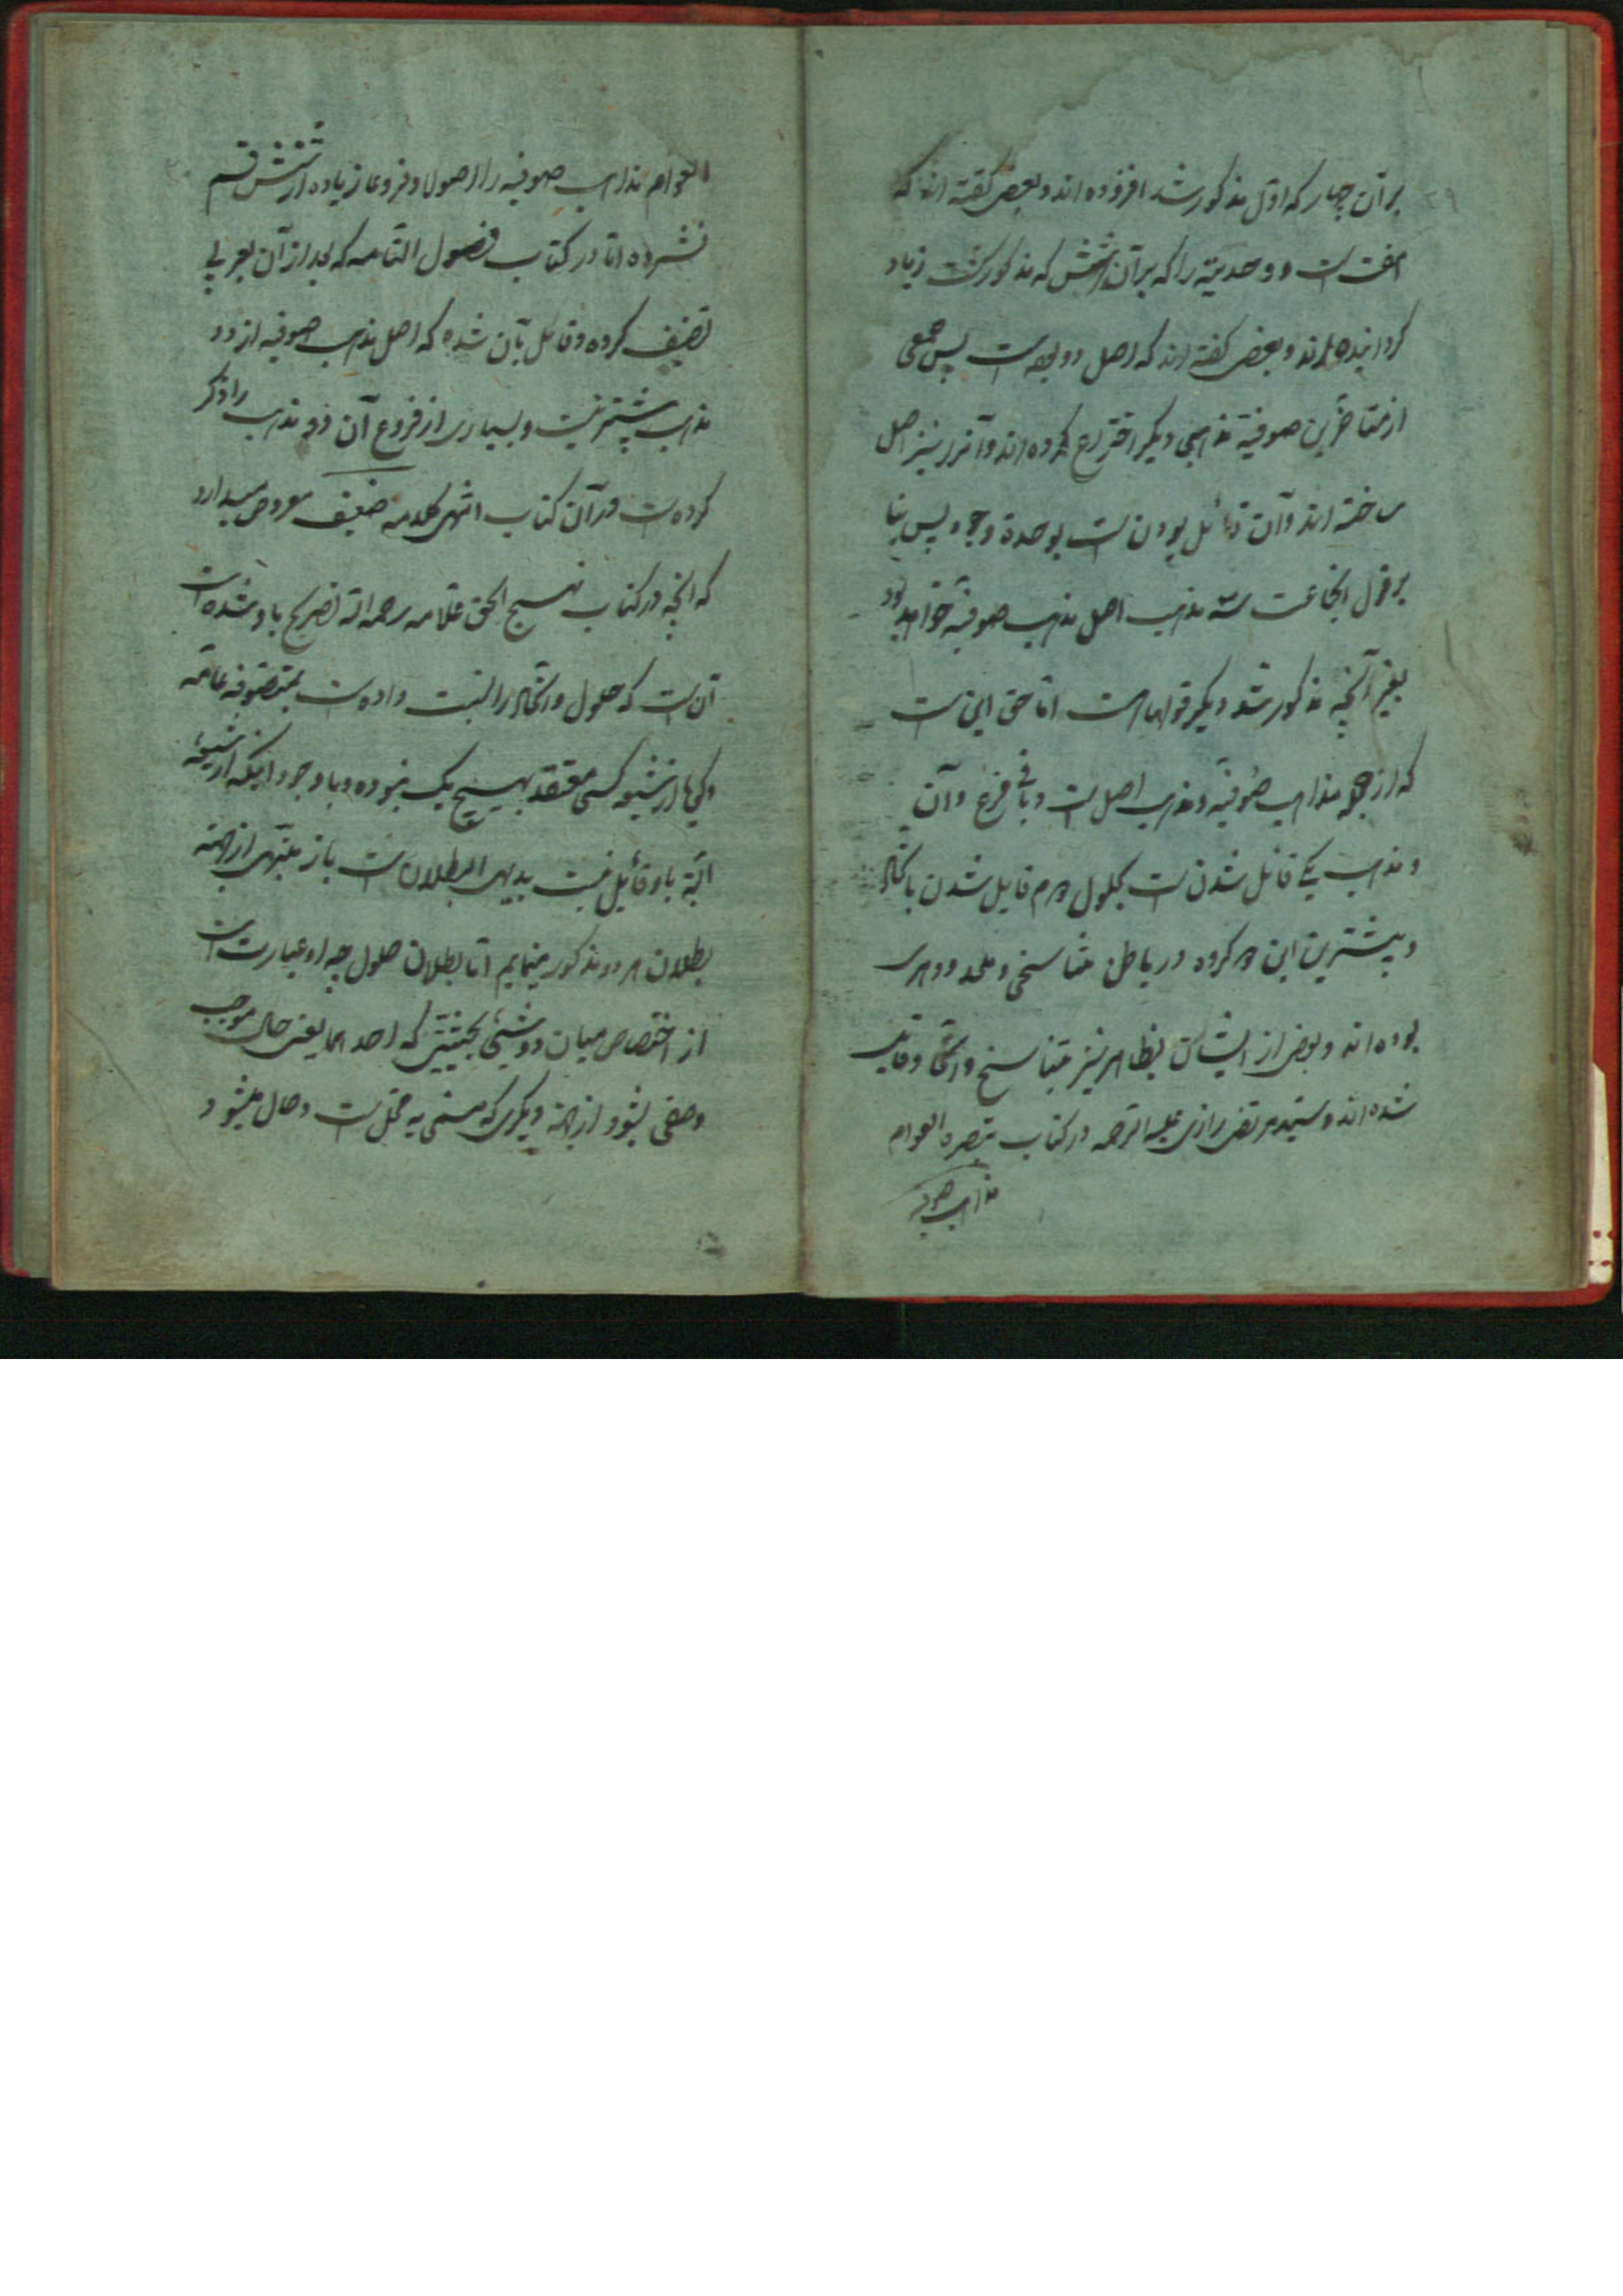 بر آن چهار که اول مذکور شد افزوده اند و بعضی گفته اند که
هفت است و وحدیته را که بر آن شش که مذکور گشت زیاد
گردانیده اند و بعضی گفته اند که اصل دو بوده است پس جمعی
از متاخرین صوفیه مذهبی دیگر اختراع کرده اند و آنرا نیز اصل
ساخته اند و آن قائل بودن است بوحدة وجود پس بنا
بر قول انجماعت سه مذهب اصل مذهب صوفیه خواهد بود
بغیر آنچه مذکور شد دیگر قولها هست اما حق این است
که از جمله مذاهب صوفیه دو مذهب اصل است و باقی فرع و آن
دو مذهب یکی قائل شدن است بحلول دوم قایل شدن باتحاد
و بیشترین این دو گروه در باطن تناسخی و ملحد و دهری
بوده اند و بعضی از ایشان بظاهر نیز بتناسخ و اتحاد قایل
شده اند و سید مرتضی رازی علیه الرحمه در کتاب تبصرة العوام
مذاهب صوفیه
العوام مذاهب صوفیه را اصولا و فروعا زیاده از شش قسم
نشمرده اما در کتاب فصول التامه که بعد از آن بعربی
تصنیف کرده و قائل بآن شده که اصل مذهب صوفیه از دو
مذهب بیشتر نیست و بسیاری از فروع آن دو مذهب را ذکر
کرده است در آن کتاب انتهی کلامه ضعیف معروض میدارد
که آنچه در کتاب نهج الحق علامه رحمه الله تصریح باو شده است
آن است که حلول و اتحاد را نسبت داده است بمتصوفه عامه
و یکی از شیعه کسی معتقد بهیچ یک نبوده و با وجود اینکه از شیعه
البته باو قائل نیست بدیهی البطلان است باز تنبیهی از جهته
بطلان هر دو مذکور مینمایم اما بطلان حلول چه او عبارت است
از اختصاص میان دو شیئی بحیثیتی که احدهما یعنی حال موجب
وصفی بشود از جهته دیگری که مسمی به محل است و حال میشود